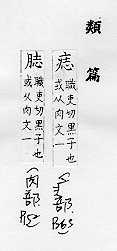 類篇
痣 職吏切黑子也
或从肉文一
部
職吏切黑子也
或从肉文一
(肉部